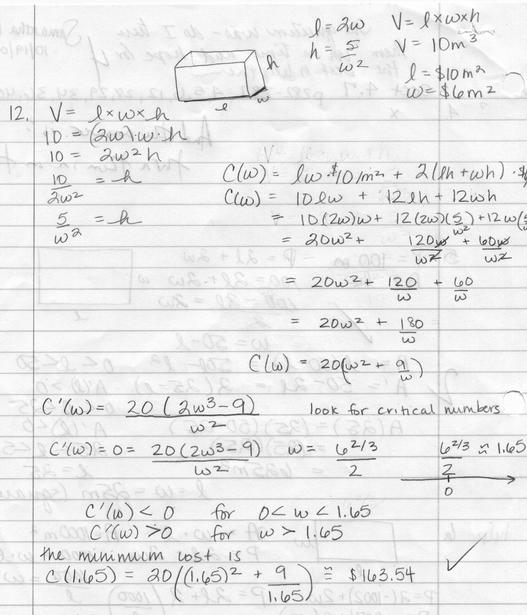 l = 2w V = l×w×h
h = 5/w² V = 10m³
l = $10m²
w = $6m²
h
l w
12. V = l×w×h
10 = (2w)·w·h
10 = 2w²h
10/2w² = h
5/w² = h
C(w) = lw·$10/m² + 2(lh + wh)·$
C(w) = 10lw + 12lh + 12wh
= 10(2w)w + 12(2w)(5/w²) + 12w(5
= 20w² + 120w/w² + 60w/w²
= 20w² + 120/w + 60/w
= 20w² + 180/w
C(w) = 20(w² + 9/w)
C'(w) = 20(2w³-9)/w² look for critical numbers
C'(w) = 0 = 20(2w³-9)/w² w = 6^2/3/2 6^2/3/2 ≈ 1.65
0
C'(w) < 0 for 0 < w < 1.65
C'(w) > 0 for w > 1.65
the minimum cost is
C(1.65) = 20((1.65)² + 9/1.65) ≅ $163.54